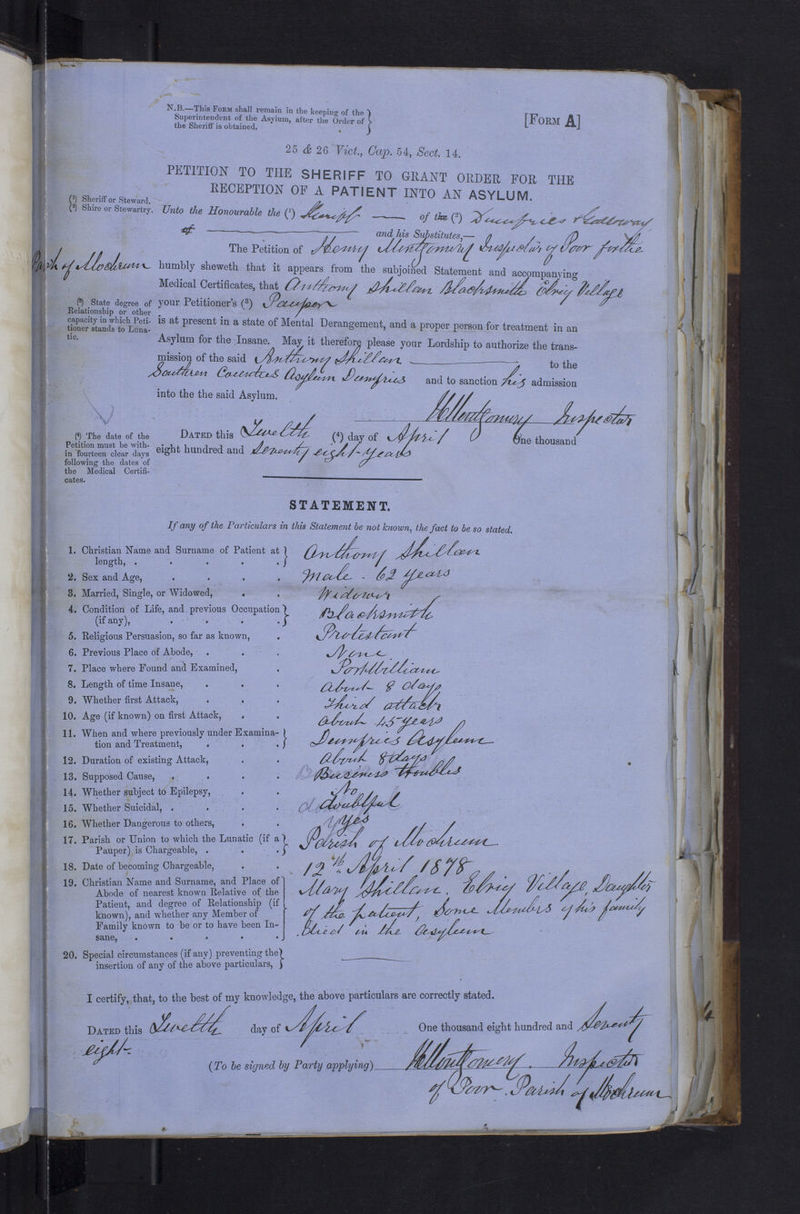 N.B.—This Form shall remain in the keeping of the
Superintendent of the Asylum, after the Order of
the Sheriff is obtained.
[Form A]
25 & 26 Vict., Cap. 54, Sect. 14.
PETITION TO THE SHERIFF TO GRANT ORDER FOR THE
RECEPTION OF A PATIENT INTO AN ASYLUM.
(1) Sheriff or Steward.
(2) Shire or Stewartry.
Unto the Honourable the (1) Sheriff — of the (2) Dumfries & Galloway
of — and his Substitutes,—
The Petition of Henry Montgomery Inspector of Poor for the
Parish of Mochrum humbly sheweth that it appears from the subjoined Statement and accompanying
Medical Certificates, that Anthony Shillan Blacksmith Elrig Village
(3) State degree of
Relationship or other
capacity in which Peti-
tioner stands to Luna-
tic.
your Petitioner's (3) Pauper
is at present in a state of Mental Derangement, and a proper person for treatment in an
Asylum for the Insane. May it therefore please your Lordship to authorize the trans-
mission of the said Anthony Shillan — to the
Southren Counties Asylum Dumfries and to sanction his admission
into the the said Asylum.
HMontgomery Inspector
(4) The date of the
Petition must be with-
in fourteen clear days
following the dates of
the Medical Certifi-
cates.
Dated this Twelth (4) day of April One thousand
eight hundred and Seventy eight years
STATEMENT.
If any of the Particulars in this Statement be not known, the fact to be so stated.
1. Christian Name and Surname of Patient at
length, . . . . . Anthony Shillan
2. Sex and Age, . . . . Male . 62 years
3. Married, Single, or Widowed, . . Widower
4. Condition of Life, and previous Occupation
(if any), . . . . Blacksmith
5. Religious Persuasion, so far as known, . Protestant
6. Previous Place of Abode, . . . None
7. Place where Found and Examined, . Port William
8. Length of time Insane, . . . about 8 days
9. Whether first Attack, . . . Third attack
10. Age (if known) on first Attack, . . about 45 years
11. When and where previously under Examina-
tion and Treatment, . . . Dumfries Asylum
12. Duration of existing Attack, . . About 8 days
13. Supposed Cause, . . . . Business troubles
14. Whether subject to Epilepsy, . . No
15. Whether Suicidal, . . . . doubtful
16. Whether Dangerous to others, . . yes
17. Parish or Union to which the Lunatic (if a
Pauper) is Chargeable, . . . Parish of Mochrum
18. Date of becoming Chargeable, . . 12th April 1878
19. Christian Name and Surname, and Place of
Abode of nearest known Relative of the
Patient, and degree of Relationship (if
known), and whether any Member of
Family known to be or to have been In-
sane, . . . . . .
Mary Shillan. Elrig Village, Daughter
of the patient, Some Members of his family
died in the asylum
20. Special circumstances (if any) preventing the
insertion of any of the above particulars, —
I certify, that, to the best of my knowledge, the above particulars are correctly stated.
Dated this Twelth day of April One thousand eight hundred and Seventy
eight.
(To be signed by Party applying) HMontgomery. Inspector
of Poor. Parish of Mochrum